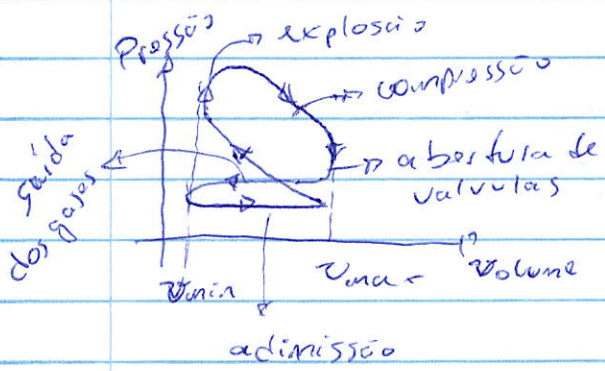 Pressão
explosão
compressão
abertura de
valvulas
Saída
dos gases
Vmin
Vmax
Volume
adimissão